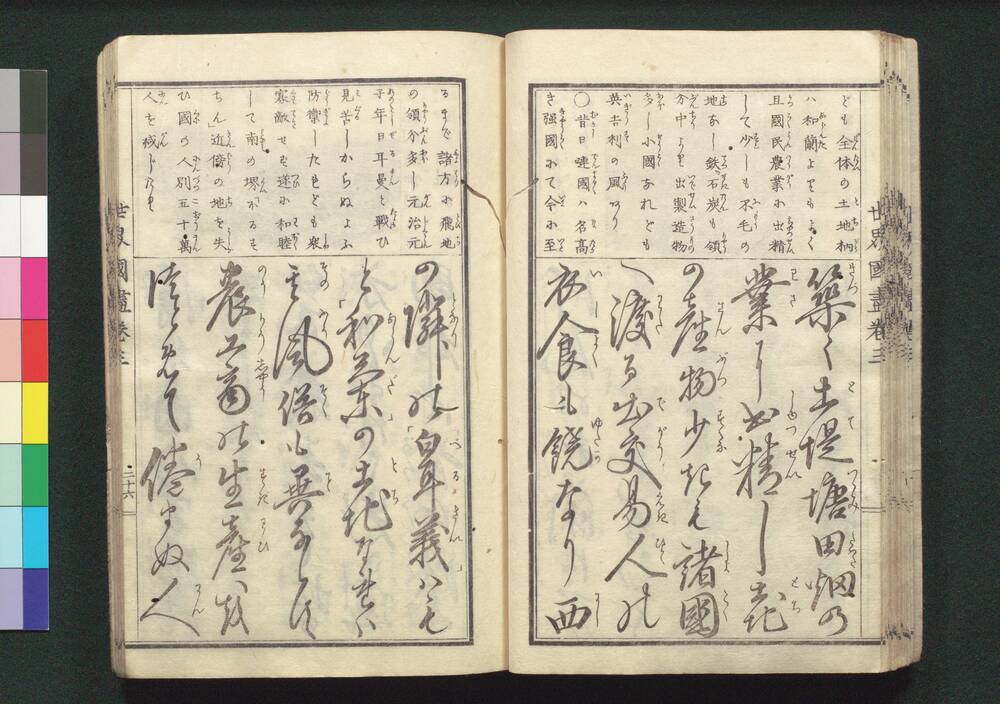 ども全体の土地柄
ハ和蘭よりもよく
且國民農業に出精
して少しも不毛の
地なし鉄石炭も領
分中より出製造物
多し小國なれども
英吉利の風あり
○昔日嗹國ハ名高
き强國にて今に至
築く土堤塘田畑の
業に出精し土地
の産物少きも諸國
へ渡る出交易人の
衣食も饒なり西
世界國盡 卷三
るまで諸方に飛地
の領分多し元治元
子年日耳曼と戰ひ
見苦しからぬよふ
防禦したれども衆
寡敵せず遂に和睦
して南の堺なるるも
ちん」近傍の地を失
ひ國の人別五十萬
人を減じたり
の隣の「白耳義」も
と「和蘭」の土地なれバ
其風俗も異ならず
農工商の生産
陸を
倦まぬ人
世界國盡 卷三
二十六